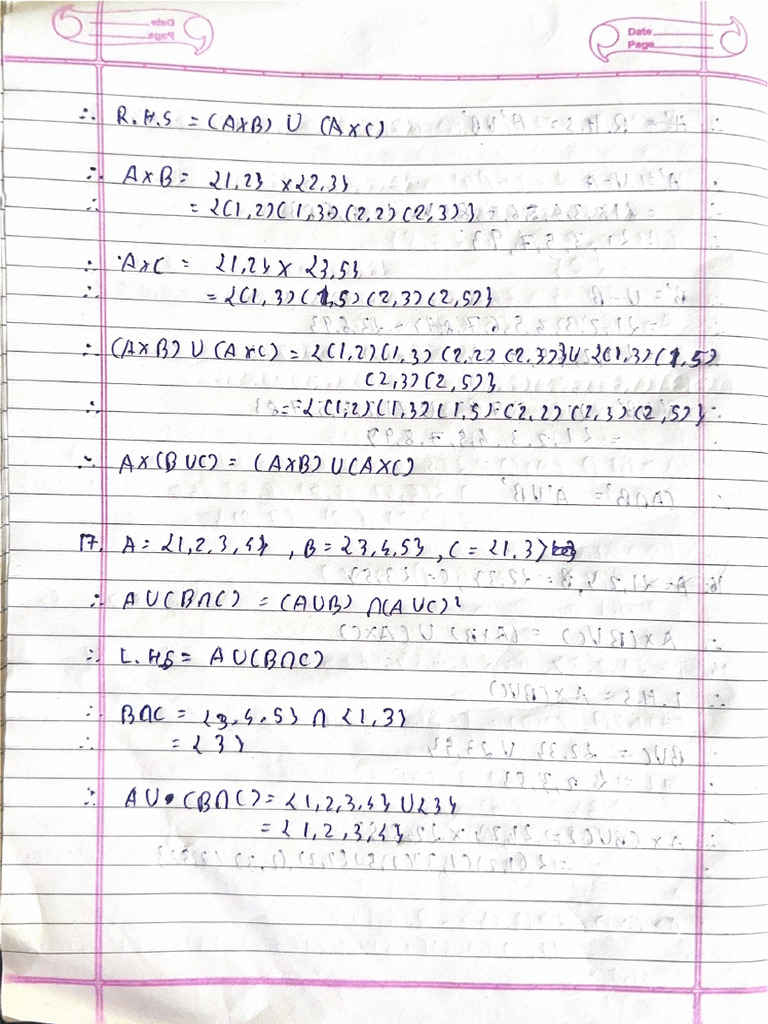 Date
Page
∴ R.H.S = (A×B) ∪ (A×C)
∴ A×B = {1,2} × {2,3}
∴ = {(1,2)(1,3)(2,2)(2,3)}
∴ A×C = {1,2} × {3,5}
∴ = {(1,3)(1,5)(2,3)(2,5)}
∴ (A×B) ∪ (A×C) = {(1,2)(1,3)(2,2)(2,3)} ∪ {(1,3)(1,5)
(2,3)(2,5)}
∴ = {(1,2)(1,3)(1,5)(2,2)(2,3)(2,5)}
∴ A×(B∪C) = (A×B) ∪ (A×C)
17. A = {1,2,3,4} , B = {3,4,5} , C = {1,3}
∴ A∪(B∩C) = (A∪B) ∩ (A∪C)
∴ L.H.S = A∪(B∩C)
∴ B∩C = {3,4,5} ∩ {1,3}
∴ = {3}
∴ A∪(B∩C) = {1,2,3,4} ∪ {3}
= {1,2,3,4}